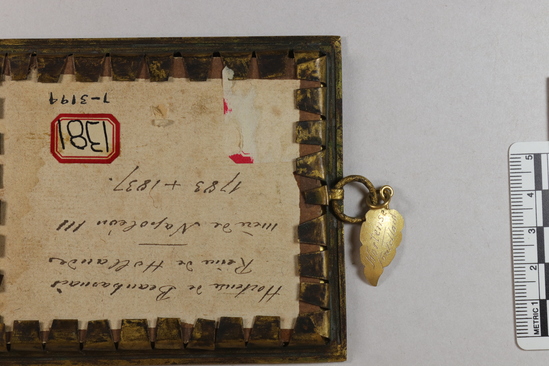 Hortense de Beauharnais
Reine de Hollande
mère de Napoléon III
1783 + 1837.
1381
7-3199
METRIC 1
2
3
4
5